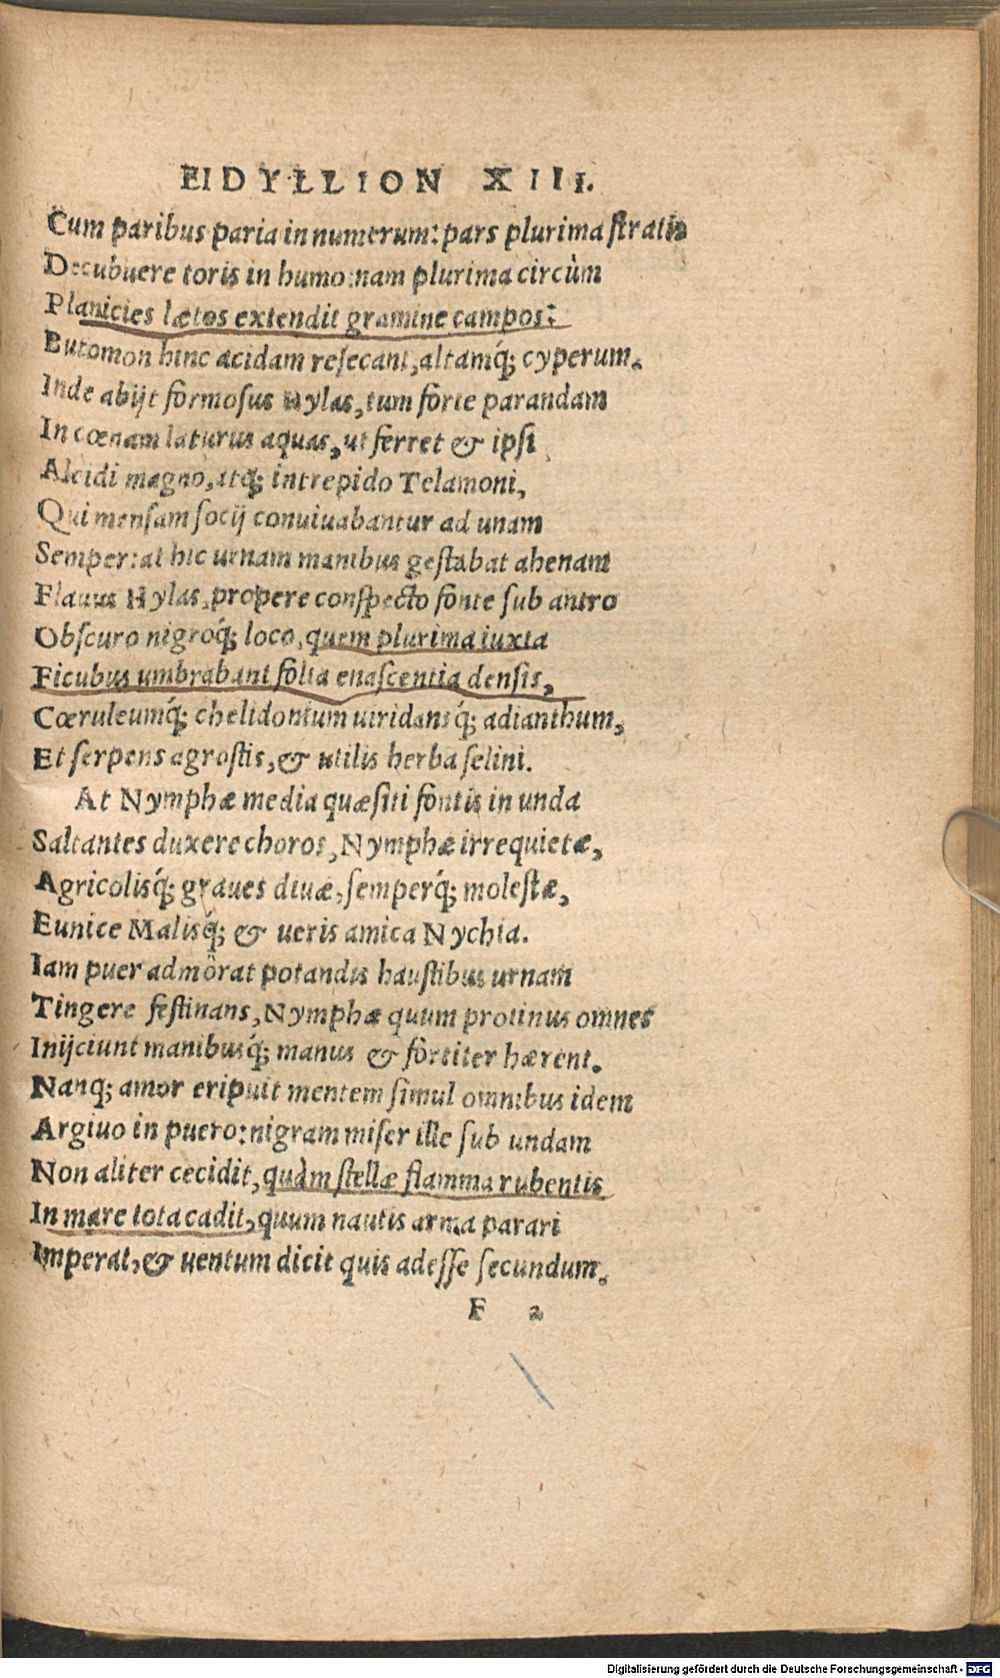 EIDYLLION XIII.
Cum paribus paria in numerum: pars plurima ſtratis
Decubuere toris in humo: nam plurima circùm
Planicies lætos extendit gramine campos:
Butomon hinc acidam reſecant, altamq́; cyperum.
Inde abijt formoſus Hylas, tum forte parandam
In cœnam laturus aquas, ut ferret & ipſi
Alcidi magno, atq; intrepido Telamoni,
Qui menſam ſocij conuiuabantur ad unam
Semper: at hic urnam manibus geſtabat ahenam
Flauus Hylas, propere conſpecto fonte ſub antro
Obſcuro nigroq́; loco, quem plurima iuxta
Ficubus umbrabant folia enaſcentia denſis,
Cœruleumq́; chelidonium uiridansq́; adianthum,
Et ſerpens agroſtis, & utilis herba ſelini.
At Nymphæ media quæſiti fontis in unda
Saltantes duxere choros, Nymphæ irrequietæ,
Agricolisq́; graues diuæ, ſemperq́; moleſtæ,
Eunice Malisq́; & ueris amica Nychia.
Iam puer admôrat potandis hauſtibus urnam
Tingere feſtinans, Nymphæ quum protinus omnes
Inijciunt manibusq́; manus & fortiter hærent.
Nanq; amor eripuit mentem ſimul omnibus idem
Argiuo in puero: nigram miſer ille ſub undam
Non aliter cecidit, quàm ſtellæ flamma rubentis
In mare tota cadit, quum nautis arma parari
Imperat, & uentum dicit quis adeſſe ſecundum.
F 2
Digitalisierung gefördert durch die Deutsche Forschungsgemeinschaft - DFG